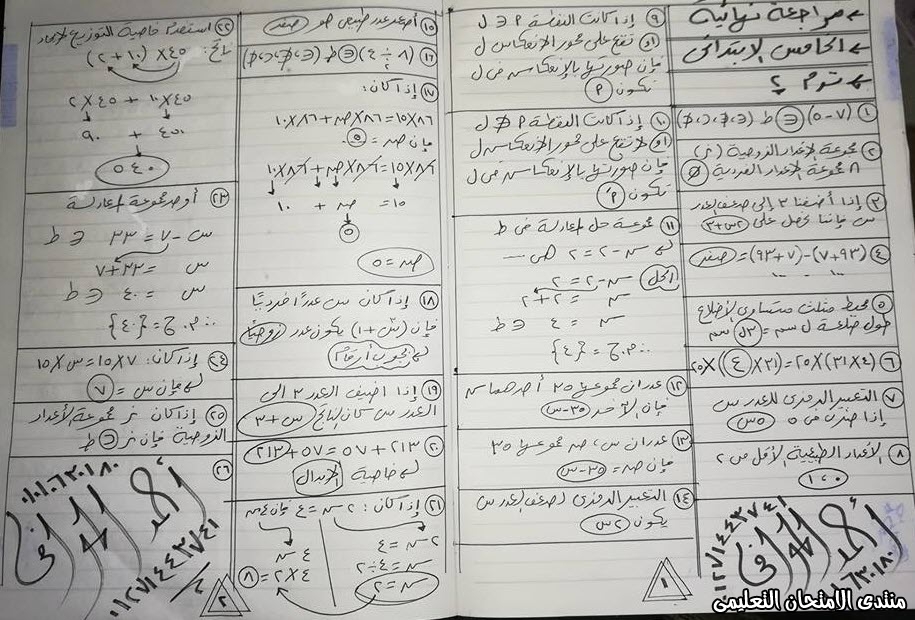 ← مراجعة نهائية
← الخامس الابتدائى
← ترم ٢
١) (٧ - ٥) ∋ ط (∋، ∌، ⊂، ⊄)
٢) مجموعة الأعداد الزوجية (ز)
∩ مجموعة الأعداد الفردية = ∅
٣) إذا أضفنا ٣ إلى ضعف العدد
س فإننا نحصل على ٢س+٣
٤) (٩٣+٧) - (٧+٩٣) = صفر
١٠٠ ١٠٠
٥) محيط مثلث متساوى الأضلاع
طول ضلعه ل سم = ٣ل سم
٦) (٤×٣١)×٢٥ = (٣١×٤)×٢٥
٧) التعبير الرمزى للعدد س
إذا ضرب فى ٥ ٥س
٨) الأعداد الطبيعية الأقل من ٢
٠، ١
أحمد
٠١١٢٧١٤٤٣٧٤١
٩) إذا كانت النقطة P ∋ ل
أو تقع على محور الانعكاس ل
فإن صورتها بالانعكاس فى ل
تكون P
١٠) إذا كانت النقطة P ∌ ل
أو لا تقع على محور الانعكاس ل
فإن صورتها بالانعكاس فى ل
تكون P'
١١) مجموعة حل المعادلة فى ط
س - ٢ = ٢ هى ....
الحل س - ٢ = ٢
س = ٢ + ٢
س = ٤ ∋ ط
∴ م.ح = {٤}
١٢) عددان مجموعهما ٣٥ أحدهما س
فإن الآخر ٣٥ - س
١٣) عددان س، ص مجموعهما ٣٥
فإن ص = ٣٥ - س
١٤) التعبير الرمزى لضعف العدد س
يكون ٢س
١
١٥) أصغر عدد طبيعى هو صفر
١٦) (٨ ÷ ٤) ∋ ط (∋، ∌، ⊂، ⊄)
١٧) إذا كان:
٨٦×١٥ = ٨٦×ص + ٨٦×١٠
فإن ص = ٥
٨٦×١٥ = ٨٦×ص + ٨٦×١٠
١٥ = ص + ١٠
٥
ص = ٥
١٨) إذا كان س عددًا فرديًا
فإن (س + ١) يكون عدد زوجيًا
١٩) إذا أضيف العدد ٣ الى
العدد س كان الناتج س + ٣
٢٠) ٢١٣ + ٥٧ = ٥٧ + ٢١٣
خاصية الإبدال
٢١) إذا كان: ٢س = ٤ فإن ٤س
٢س = ٤
س = ٤ ÷ ٢
س = ٢
٤ س
٤ × ٢ = ٨
٢
٢٢) استخدم خاصية التوزيع لإيجاد
ناتج: ٤٥ × (١٠ + ٢)
٤٥×١٠ + ٤٥×٢
٤٥٠ + ٩٠
٥٤٠
٢٣) أوجد مجموعة المعادلة
س - ٧ = ٣٣ ∋ ط
س = ٣٣ + ٧
س = ٤٠ ∋ ط
∴ م.ح = {٤٠}
٢٤) إذا كان: ١٥×٧ = س×١٥
فإن س = ٧
٢٥) إذا كان ز مجموعة الأعداد
الزوجية فإن ز ⊂ ط
٢٦)
أحمد
٠١١٢٧١٤٤٣٧٤١
منتدى الامتحان التعليمى